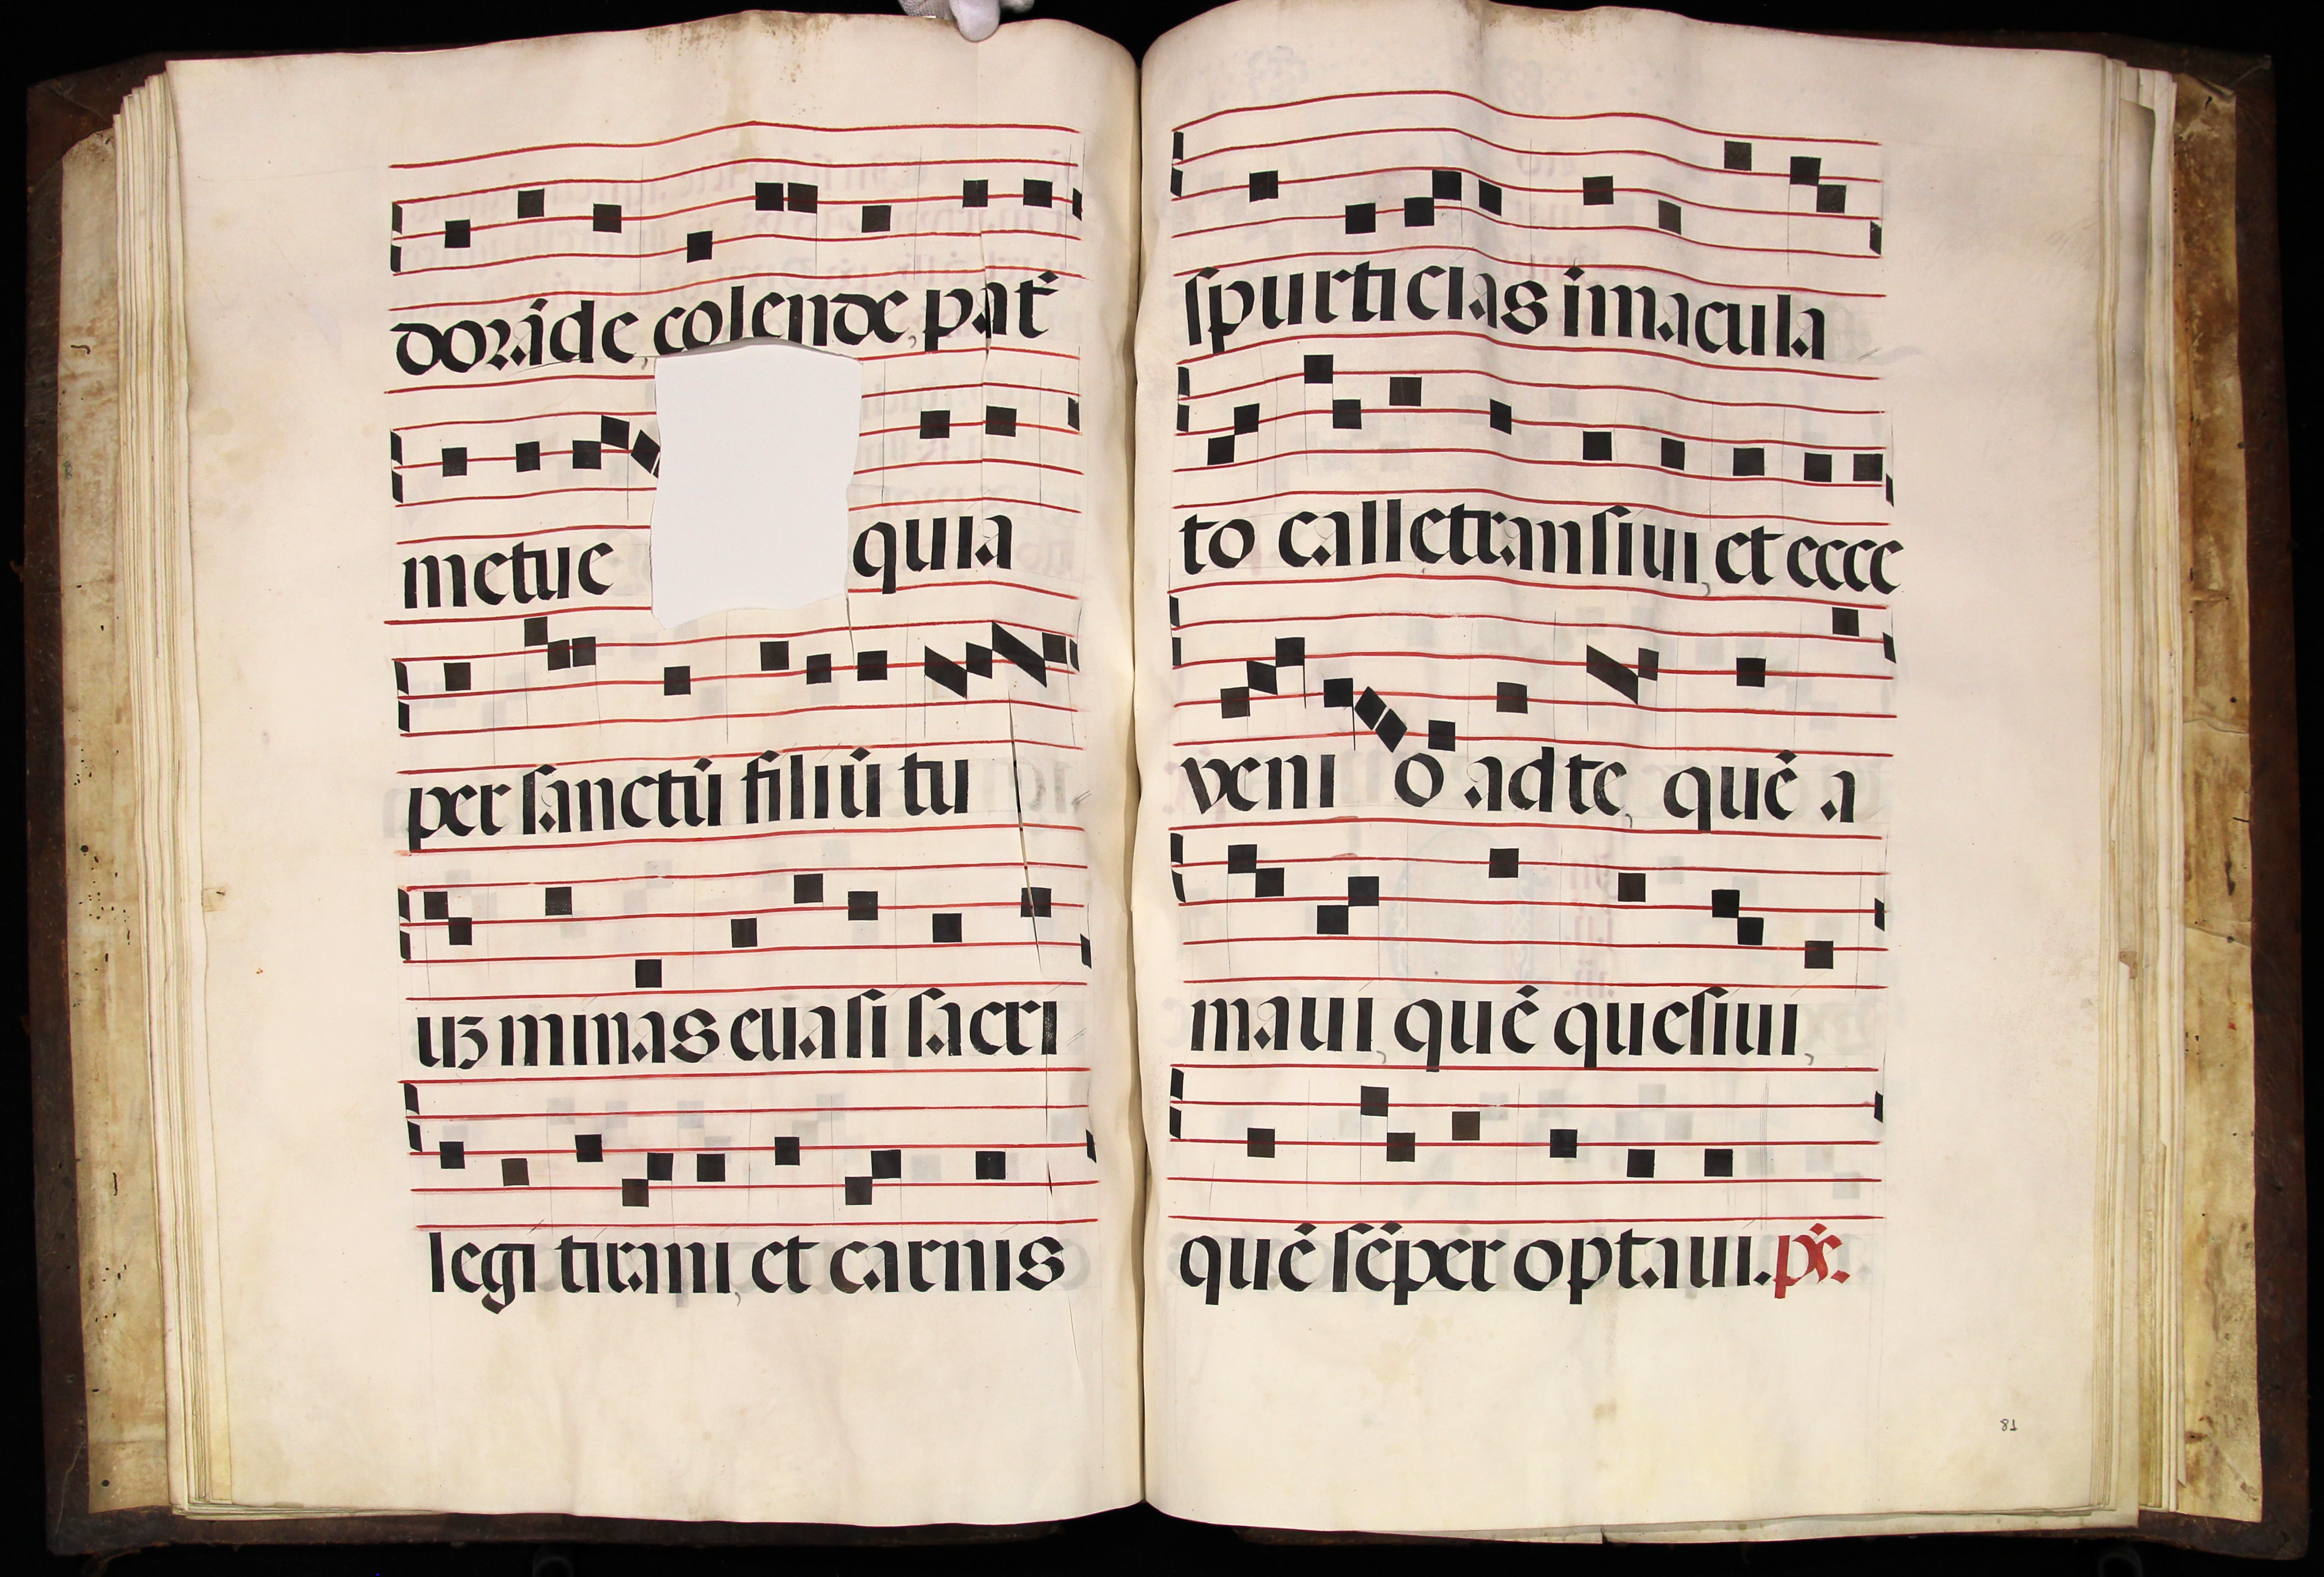 doraīde, colende, pat̄
metue quia
per ſanctū filiū tu
uȝ minas euaſi ſacri
legi tirani, et carnis
ſpurticias imacula
to calle tranſiui, et ecce
venio ad te, quē a
maui, quē queſiui,
quē ſēper optaui. ps̄.
81